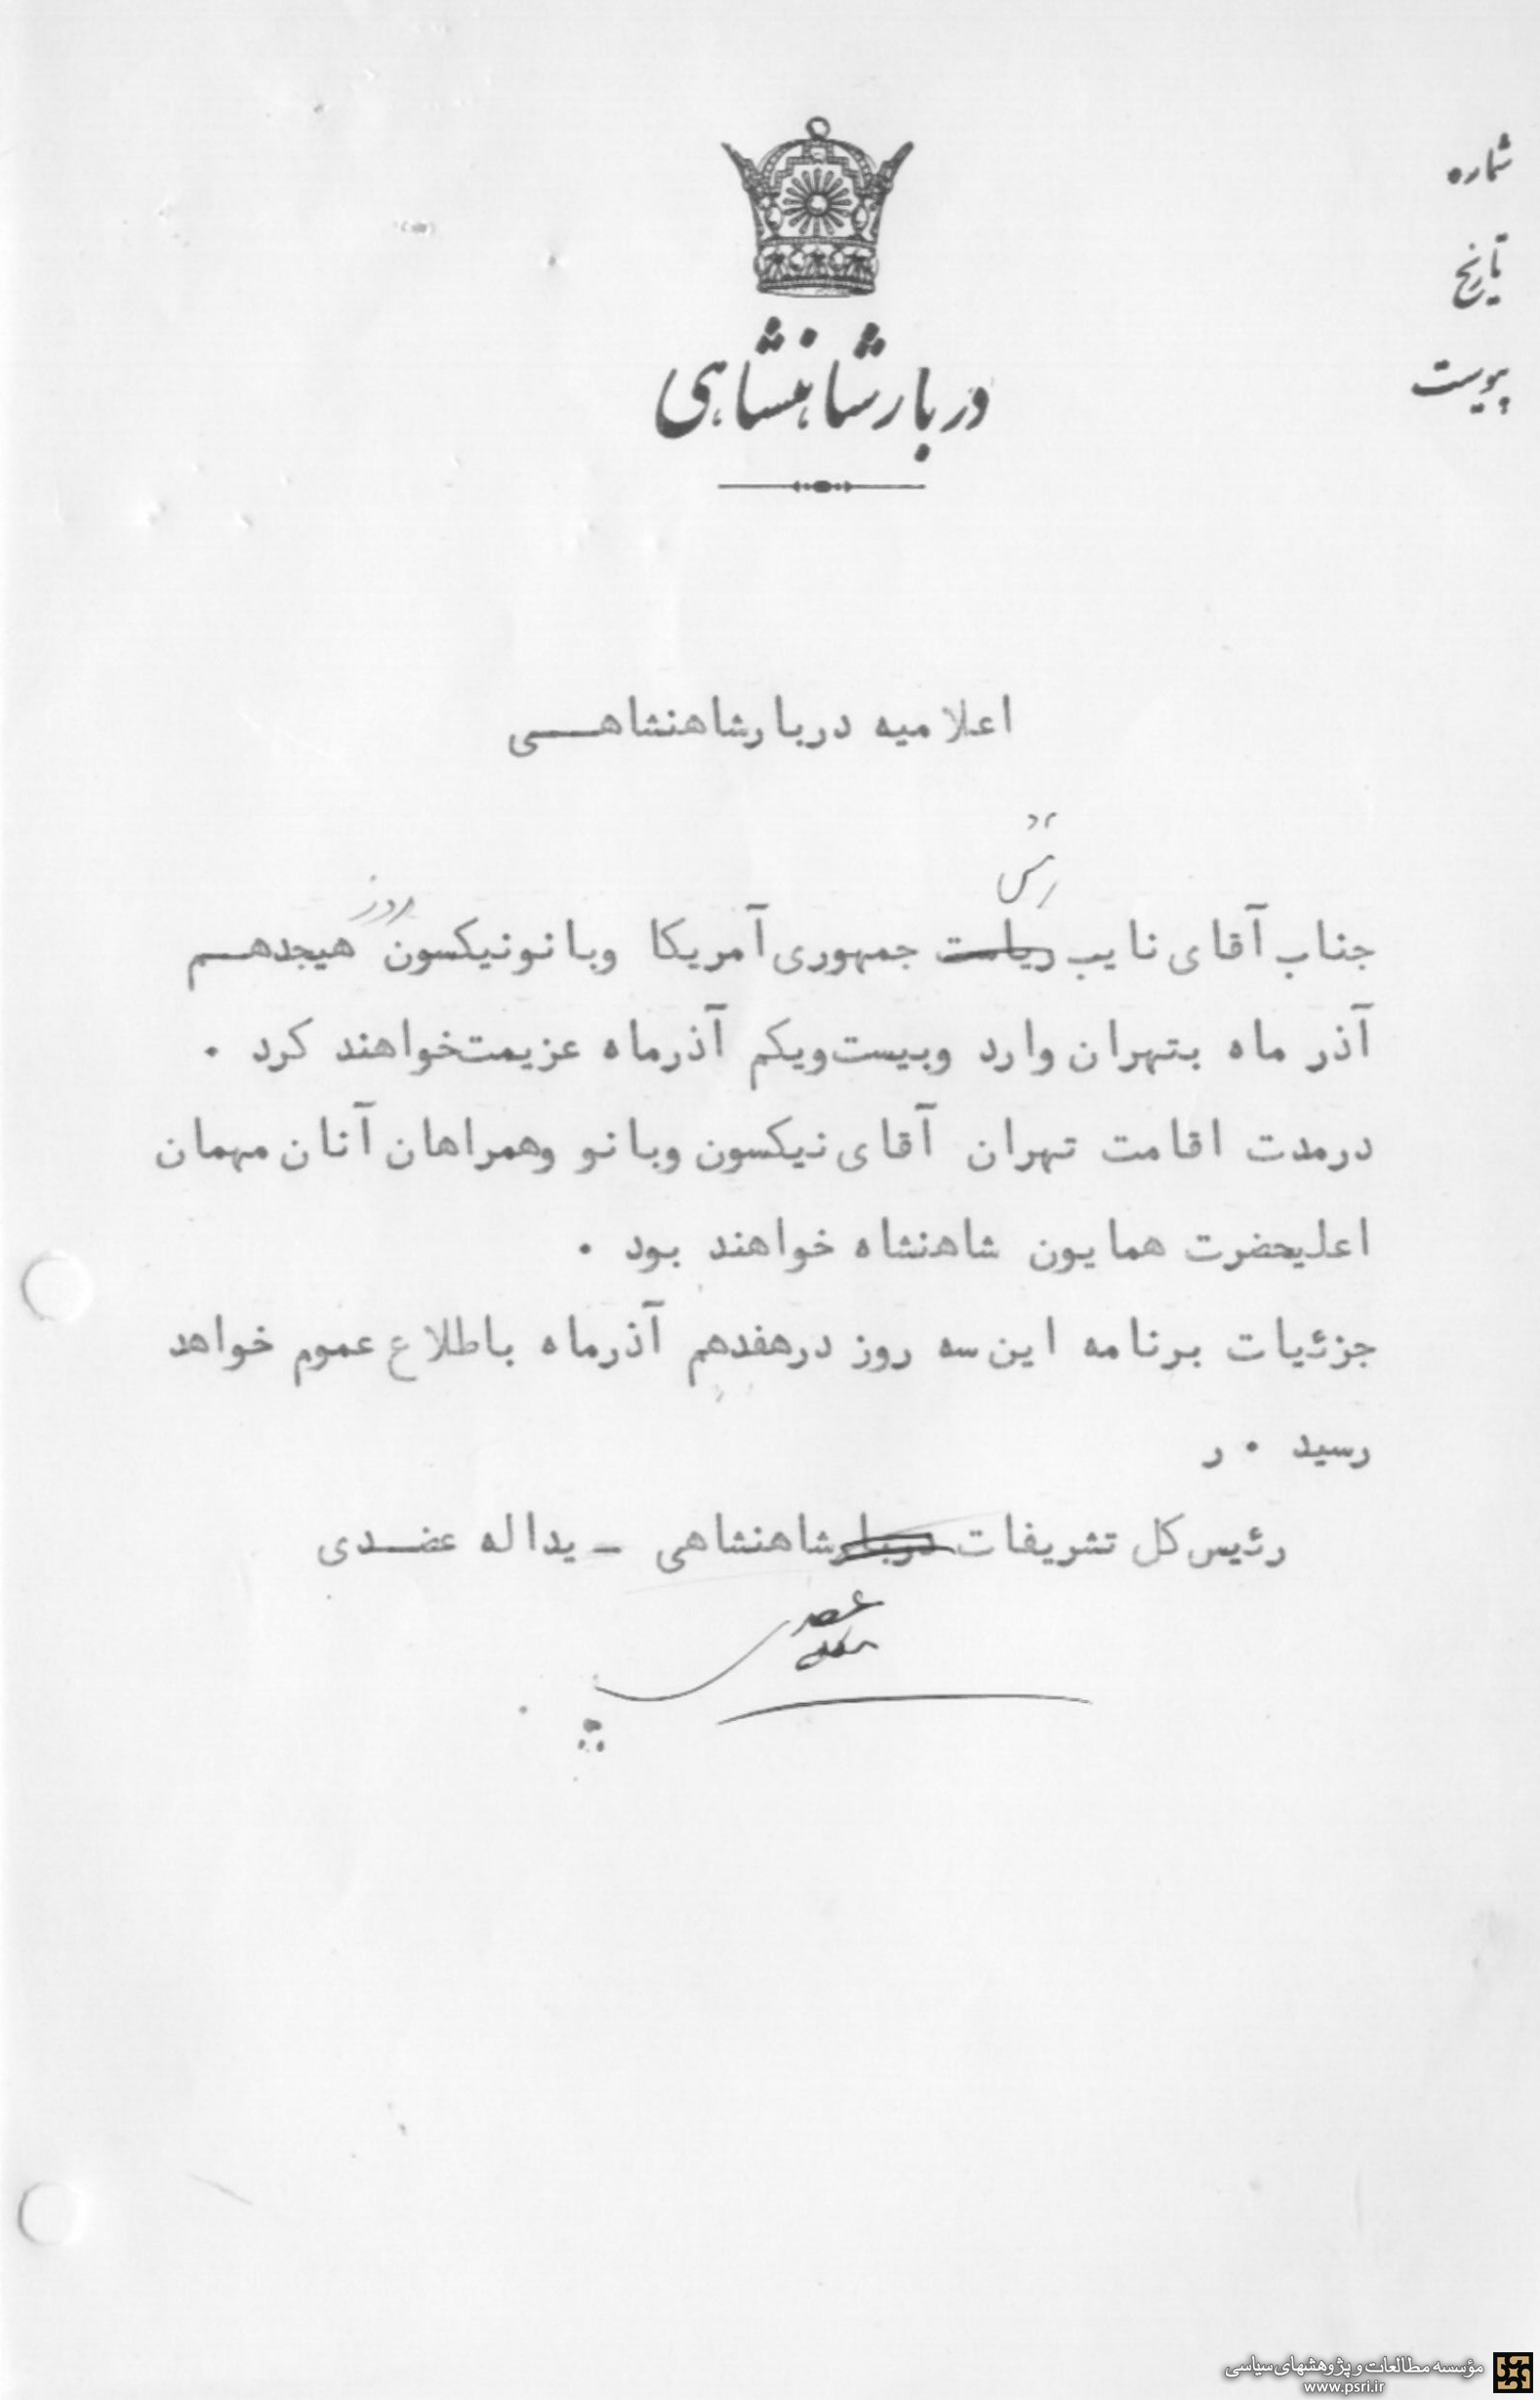 شماره
تاریخ
پیوست
دربار شاهنشاهی
اعلامیه دربارشاهنشاهی
رئیس
جناب آقای نایب ریاست جمهوری آمریکا وبانونیکسون روز هیجدهم
آذر ماه بتهران وارد وبیست‌ویکم آذرماه عزیمت‌خواهند کرد .
درمدت اقامت تهران آقای نیکسون وبانو وهمراهان آنان مهمان
اعلیحضرت همایون شاهنشاه خواهند بود .
جزئیات برنامه این سه روز درهفدهم آذرماه باطلاع عموم خواهد
رسید . ر
رئیس کل تشریفات دربار شاهنشاهی – یداله عضدی
مؤسسه مطالعات و پژوهشهای سیاسی
www.psri.ir